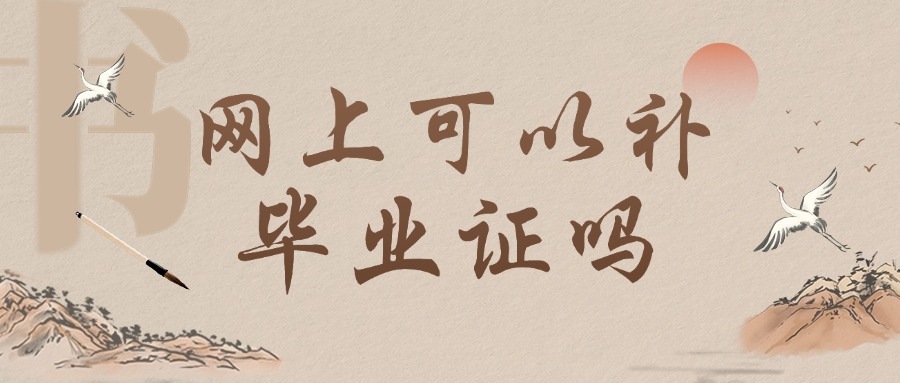 书
网上可以补
毕业证吗